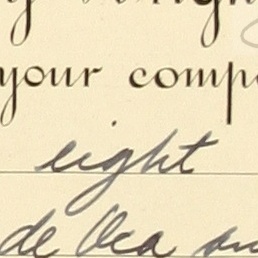 your comp
eight
de Oca an